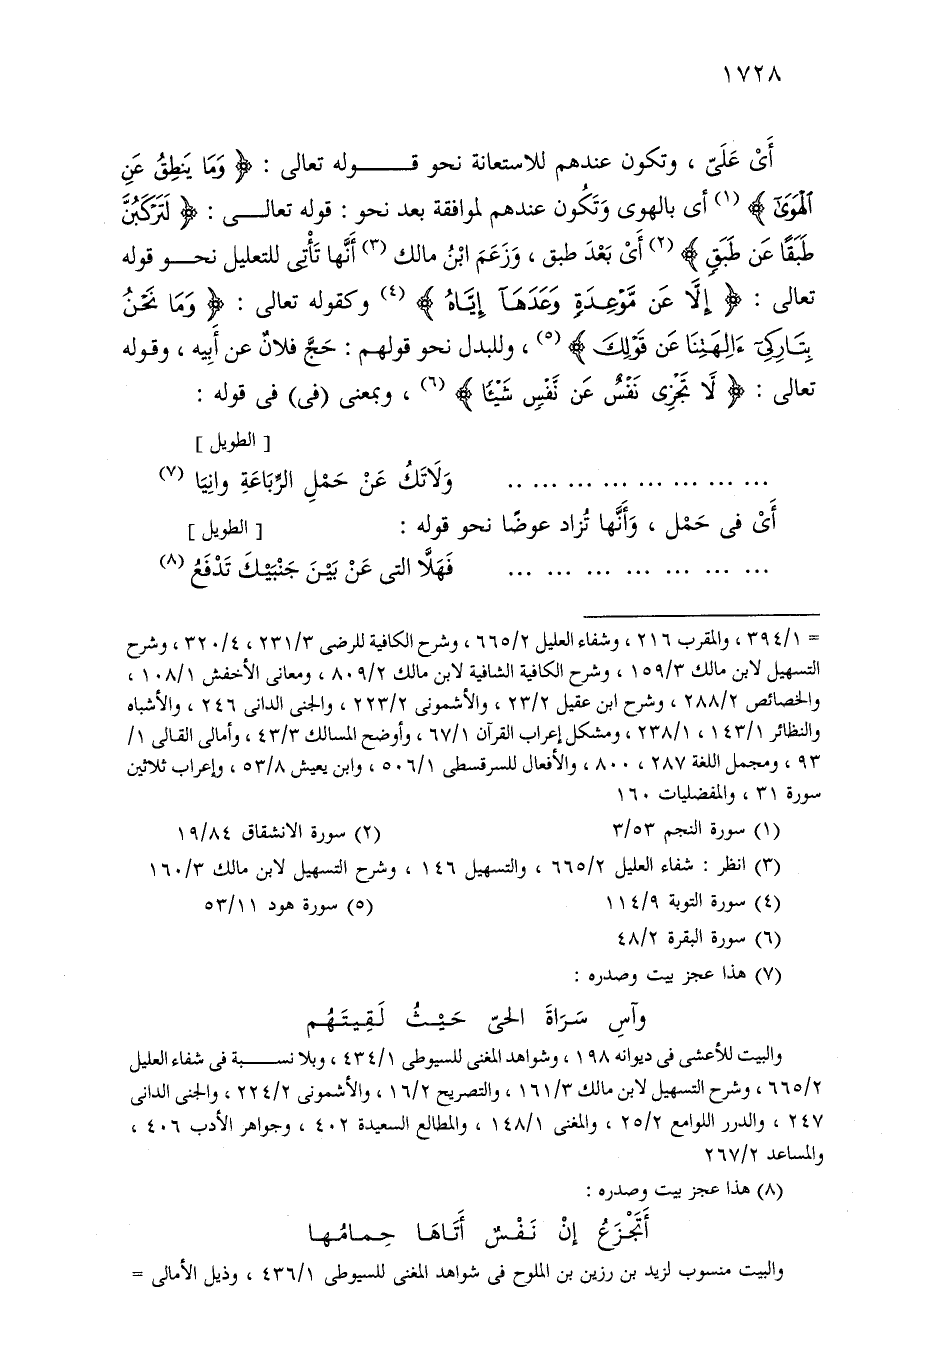 ١٧٢٨
أَىْ عَلَىّ ، وتكون عندهم للاستعانة نحو قـــوله تعالى : ﴿ وَمَا يَنطِقُ عَنِ
ٱلْهَوَىٰٓ ﴾ (١) أى بالهوى وَتَكُون عندهم لموافقة بعد نحو : قوله تعالــى : ﴿ لَتَرْكَبُنَّ
طَبَقًا عَن طَبَقٍ ﴾ (٢) أىْ بَعْدَ طبق ، وَزَعَمَ ابْنُ مالك (٣) أَنَّها تَأْتِى للتعليل نحــو قوله
تعالى : ﴿ إِلَّا عَن مَّوْعِدَةٍ وَعَدَهَآ إِيَّاهُ ﴾ (٤) وكقوله تعالى : ﴿ وَمَا نَحْنُ
بِتَارِكِىٓ ءَالِهَتِنَا عَن قَوْلِكَ ﴾ (٥) ، وللبدل نحو قولهم : حَجَّ فلانٌ عن أَبِيه ، وقوله
تعالى : ﴿ لَّا تَجْزِى نَفْسٌ عَن نَّفْسٍ شَيْـًٔا ﴾ (٦) ، وبمعنى (فى) فى قوله :
[ الطويل ]
... ... ... ... ... ... .. وَلَاتَكُ عَنْ حَمْلِ الرِّبَاعَةِ وانِيَا (٧)
أَىْ فى حَمْل ، وَأَنَّها تُزَاد عوضًا نحو قوله : [ الطويل ]
... ... ... ... ... ... ... فَهَلَّا التى عَنْ بَيْنَ جَنْبَيْكَ تَدْفَعُ (٨)
= ٣٩٤/١ ، والمقرب ٢١٦ ، وشفاء العليل ٦٦٥/٢ ، وشرح الكافية للرضى ٢٣١/٣ ، ٣٢٠/٤ ، وشرح
التسهيل لابن مالك ١٥٩/٣ ، وشرح الكافية الشافية لابن مالك ٨٠٩/٢ ، ومعانى الأخفش ١٠٨/١ ،
والخصائص ٢٨٨/٢ ، وشرح ابن عقيل ٢٣/٢ ، والأشمونى ٢٢٣/٢ ، والجنى الدانى ٢٤٦ ، والأشباه
والنظائر ١٤٣/١ ، ٢٣٨/١ ، ومشكل إعراب القرآن ٦٧/١ ، وأوضح المسالك ٤٣/٣ ، وأمالى القالى ١/
٩٣ ، ومجمل اللغة ٢٨٧ ، ٨٠٠ ، والأفعال للسرقسطى ٥٠٦/١ ، وابن يعيش ٥٣/٨ ، وإعراب ثلاثين
سورة ٣١ ، والمفضليات ١٦٠
(١) سورة النجم ٣/٥٣ (٢) سورة الانشقاق ١٩/٨٤
(٣) انظر : شفاء العليل ٦٦٥/٢ ، والتسهيل ١٤٦ ، وشرح التسهيل لابن مالك ١٦٠/٣
(٤) سورة التوبة ١١٤/٩ (٥) سورة هود ٥٣/١١
(٦) سورة البقرة ٤٨/٢
(٧) هذا عجز بيت وصدره :
وآسِ سَرَاةَ الحىّ حَيْثُ لَقِيتَهُم
والبيت للأعشى فى ديوانه ١٩٨ ، وشواهد المغنى للسيوطى ٤٣٤/١ ، وبلا نســـبة فى شفاء العليل
٦٦٥/٢ ، وشرح التسهيل لابن مالك ١٦١/٣ ، والتصريح ١٦/٢ ، والأشمونى ٢٢٤/٢ ، والجنى الدانى
٢٤٧ ، والدرر اللوامع ٢٥/٢ ، والمغنى ١٤٨/١ ، والمطالع السعيدة ٤٠٢ ، وجواهر الأدب ٤٠٦ ،
والمساعد ٢٦٧/٢
(٨) هذا عجز بيت وصدره :
أَتَجْزَعُ إِنْ نَفْسٌ أَتَاهَا حِمامُها
والبيت منسوب لزيد بن رزين بن الملوح فى شواهد المغنى للسيوطى ٤٣٦/١ ، وذيل الأمالى =